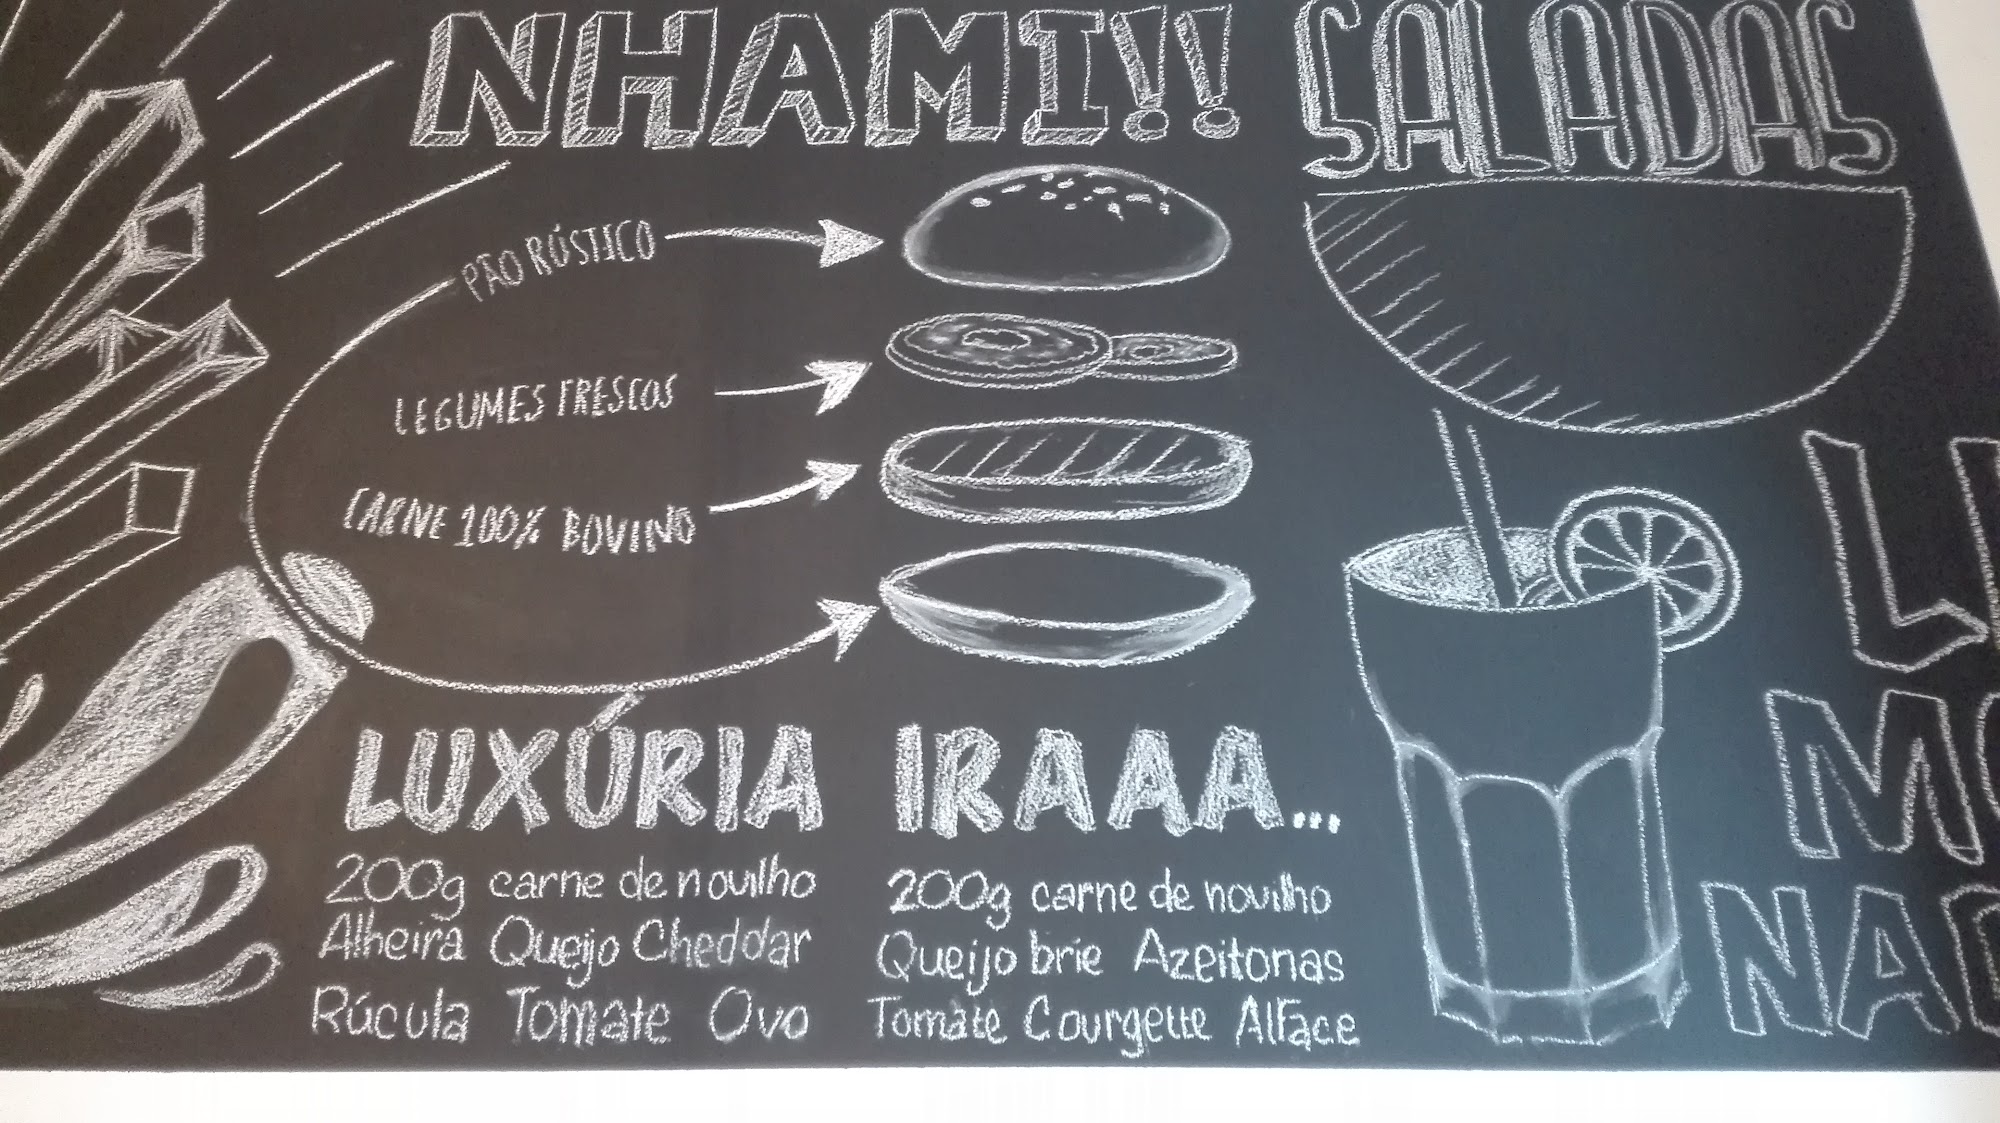 NHAMI!!
SALADAS
PÃO RÚSTICO
LEGUMES FRESCOS
CARNE 100% BOVINO
LUXÚRIA
200g carne de novilho
Alheira Queijo Cheddar
Rúcula Tomate Ovo
IRAAA...
200g carne de novilho
Queijo brie Azeitonas
Tomate Courgette Alface